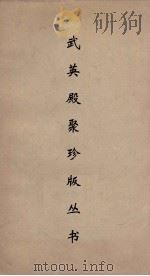 武英殿聚珍版丛书
www.mtoou.info